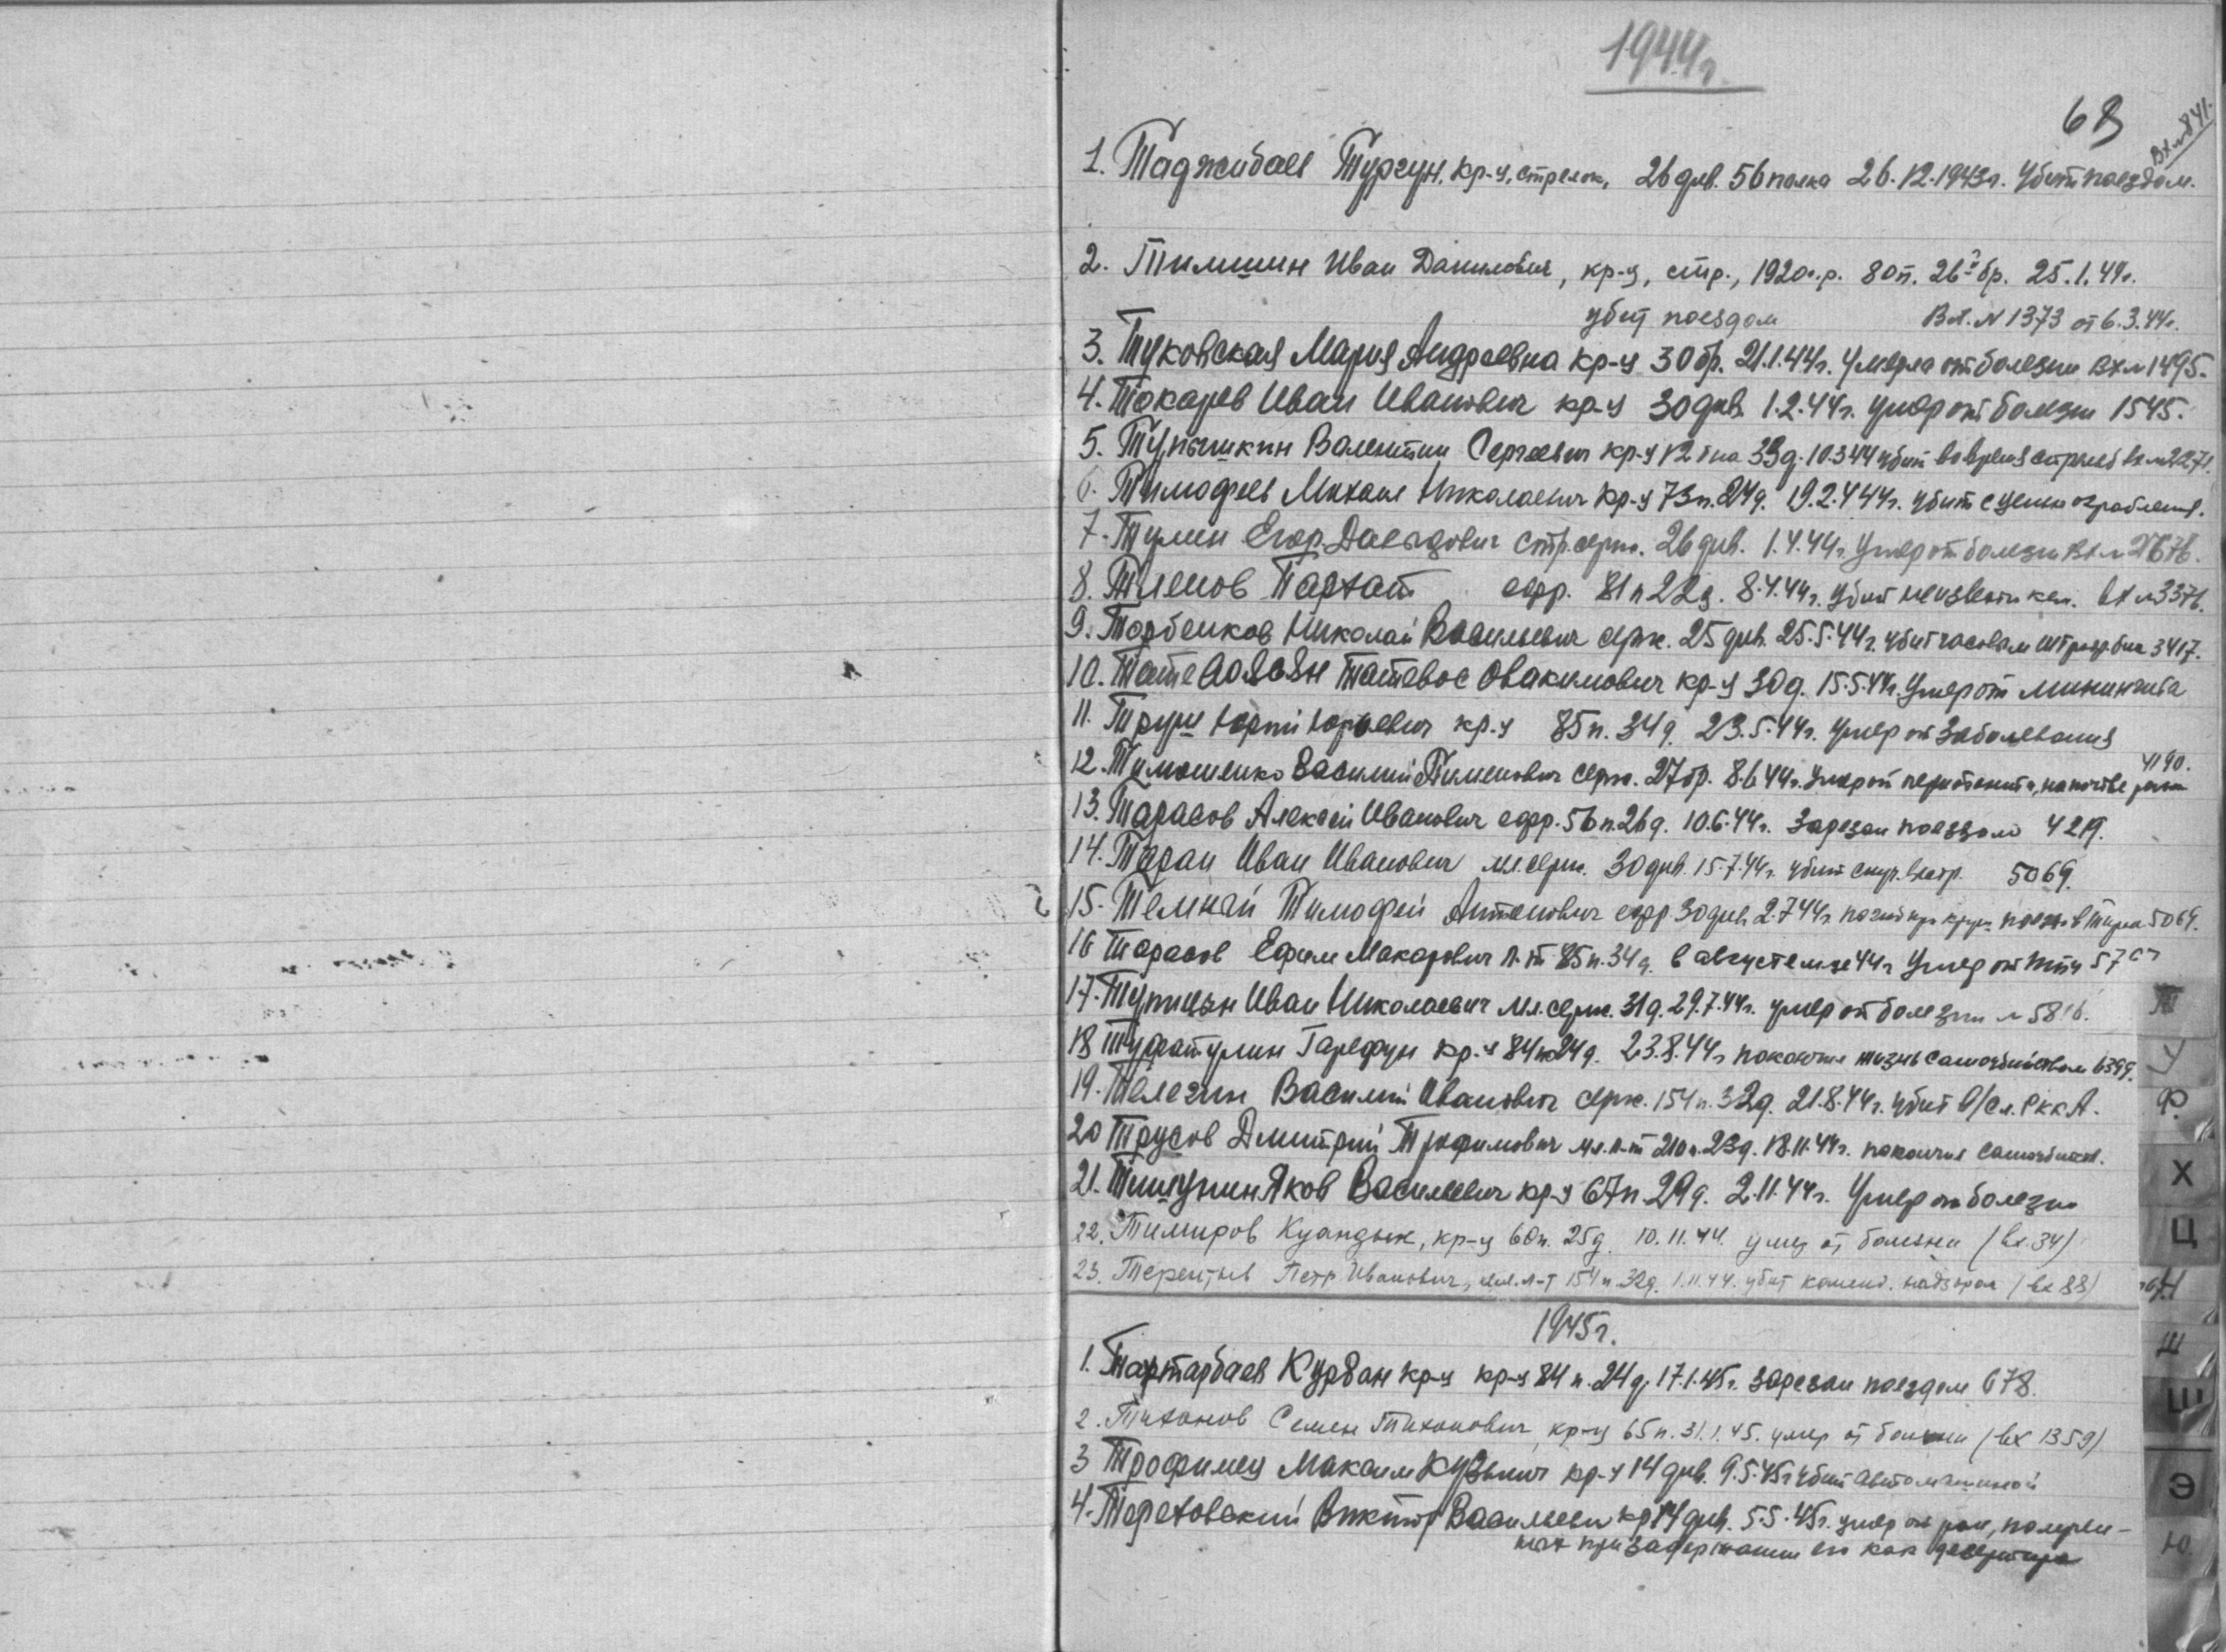 1944г.
68
Вх.№841.
1. Таджибаев Тургун. кр-ц, стрелок, 26 див. 56 полка 26.12.1943г. Убит поездом.
2. Тимшин Иван Данилович, кр-ц, стр., 1920г.р. 80п. 26й бр. 25.1.44г.
убит поездом Вх.№1373 от 6.3.44г.
3. Туковская Мария Андреевна кр-ц 30бр. 21.1.44г. Умерла от болезни Вх№1495.
4. Токарев Иван Иванович кр-ц 30див. 1.2.44г. умер от болезни 1545.
5. Тупышкин Валентин Сергеевич кр-ц 12 33д. 10.3.44 убит во время вх№2271.
6. Тимофеев Михаил Николаевич кр-ц 73п. 24д. 19.2.44г. убит с целью ограбления.
7. Тулин Егор Давыдович ст.серж. 26див. 1.4.44г. Умер от болезни Вх№2676.
8. Тленов Пархат ефр. 81п 22д. 8.4.44г. убит неизвестн кем. Вх№3376.
9. Торбенков Николай Васильевич серж. 25див. 25.5.44г. убит часовым 3417.
10. Татевосьян Татевос Овакимович кр-ц 30д. 15.5.44г. Умер от минингита
11. Труш Юрий Юрьевич кр-ц 85п. 34д. 23.5.44г. Умер от заболевания
12. Тимошенко Василий Пименович серж. 27бр. 8.6.44г. Умер от перитонита, на почве 4190.
13. Тарасов Алексей Иванович ефр. 56п. 26д. 10.6.44г. Зарезан поездом 4219.
14. Таран Иван Иванович мл.серж. 30див. 15.7.44г. убит 5069.
15. Темный Тимофей Антонович ефр 30див 2.7.44г. погиб при круш. 5069.
16 Тарасов Ефим Макарович л-т 85п. 34д. в августе м-це 44г Умер от
17. Тупицын Иван Николаевич мл.серж. 31д. 29.7.44г. умер от болезни № 5816.
18 Туфатулин Гарефун кр-ц 84п 24д. 23.8.44г покончил жизнь самоубийством 6399.
19. Телегин Василий Иванович серж. 154п. 32д. 21.8.44г. убит в/сл. РККА.
20 Трусов Дмитрий Трофимович мл.л-т 210п. 23д. 18.11.44г. покончил самоубийств.
21. Тишунин Яков Васильевич кр-ц 67п. 29д. 2.11.44г. Умер от болезни
22. Тимиров Куандык, кр-ц 60п. 25д. 10.11.44. умер от болезни (вх.34)
23. Терентьев Петр Иванович, мл.л-т 154п. 32д. 1.11.44. убит коменд. надзором (вх 88)
1945г.
1. Тартарбаев Курбан кр-ц кр-ц 84п. 24д. 17.1.45г. зарезан поездом 678.
2. Тиханов Семен Тихонович, кр-ц 65п. 31.1.45. умер от болезни (вх 1359)
3 Трофимец Максим Кузьмич кр-ц 14див. 9.5.45г Убит автомашиной
4. Тереховский Виктор Васильевич кр-ц 14див. 5.5.45г. умер от ран, получен-
ных при задержании его как дезертира
Т
У
Ф
Х
Ц
Ч
Ш
Щ
Э
Ю